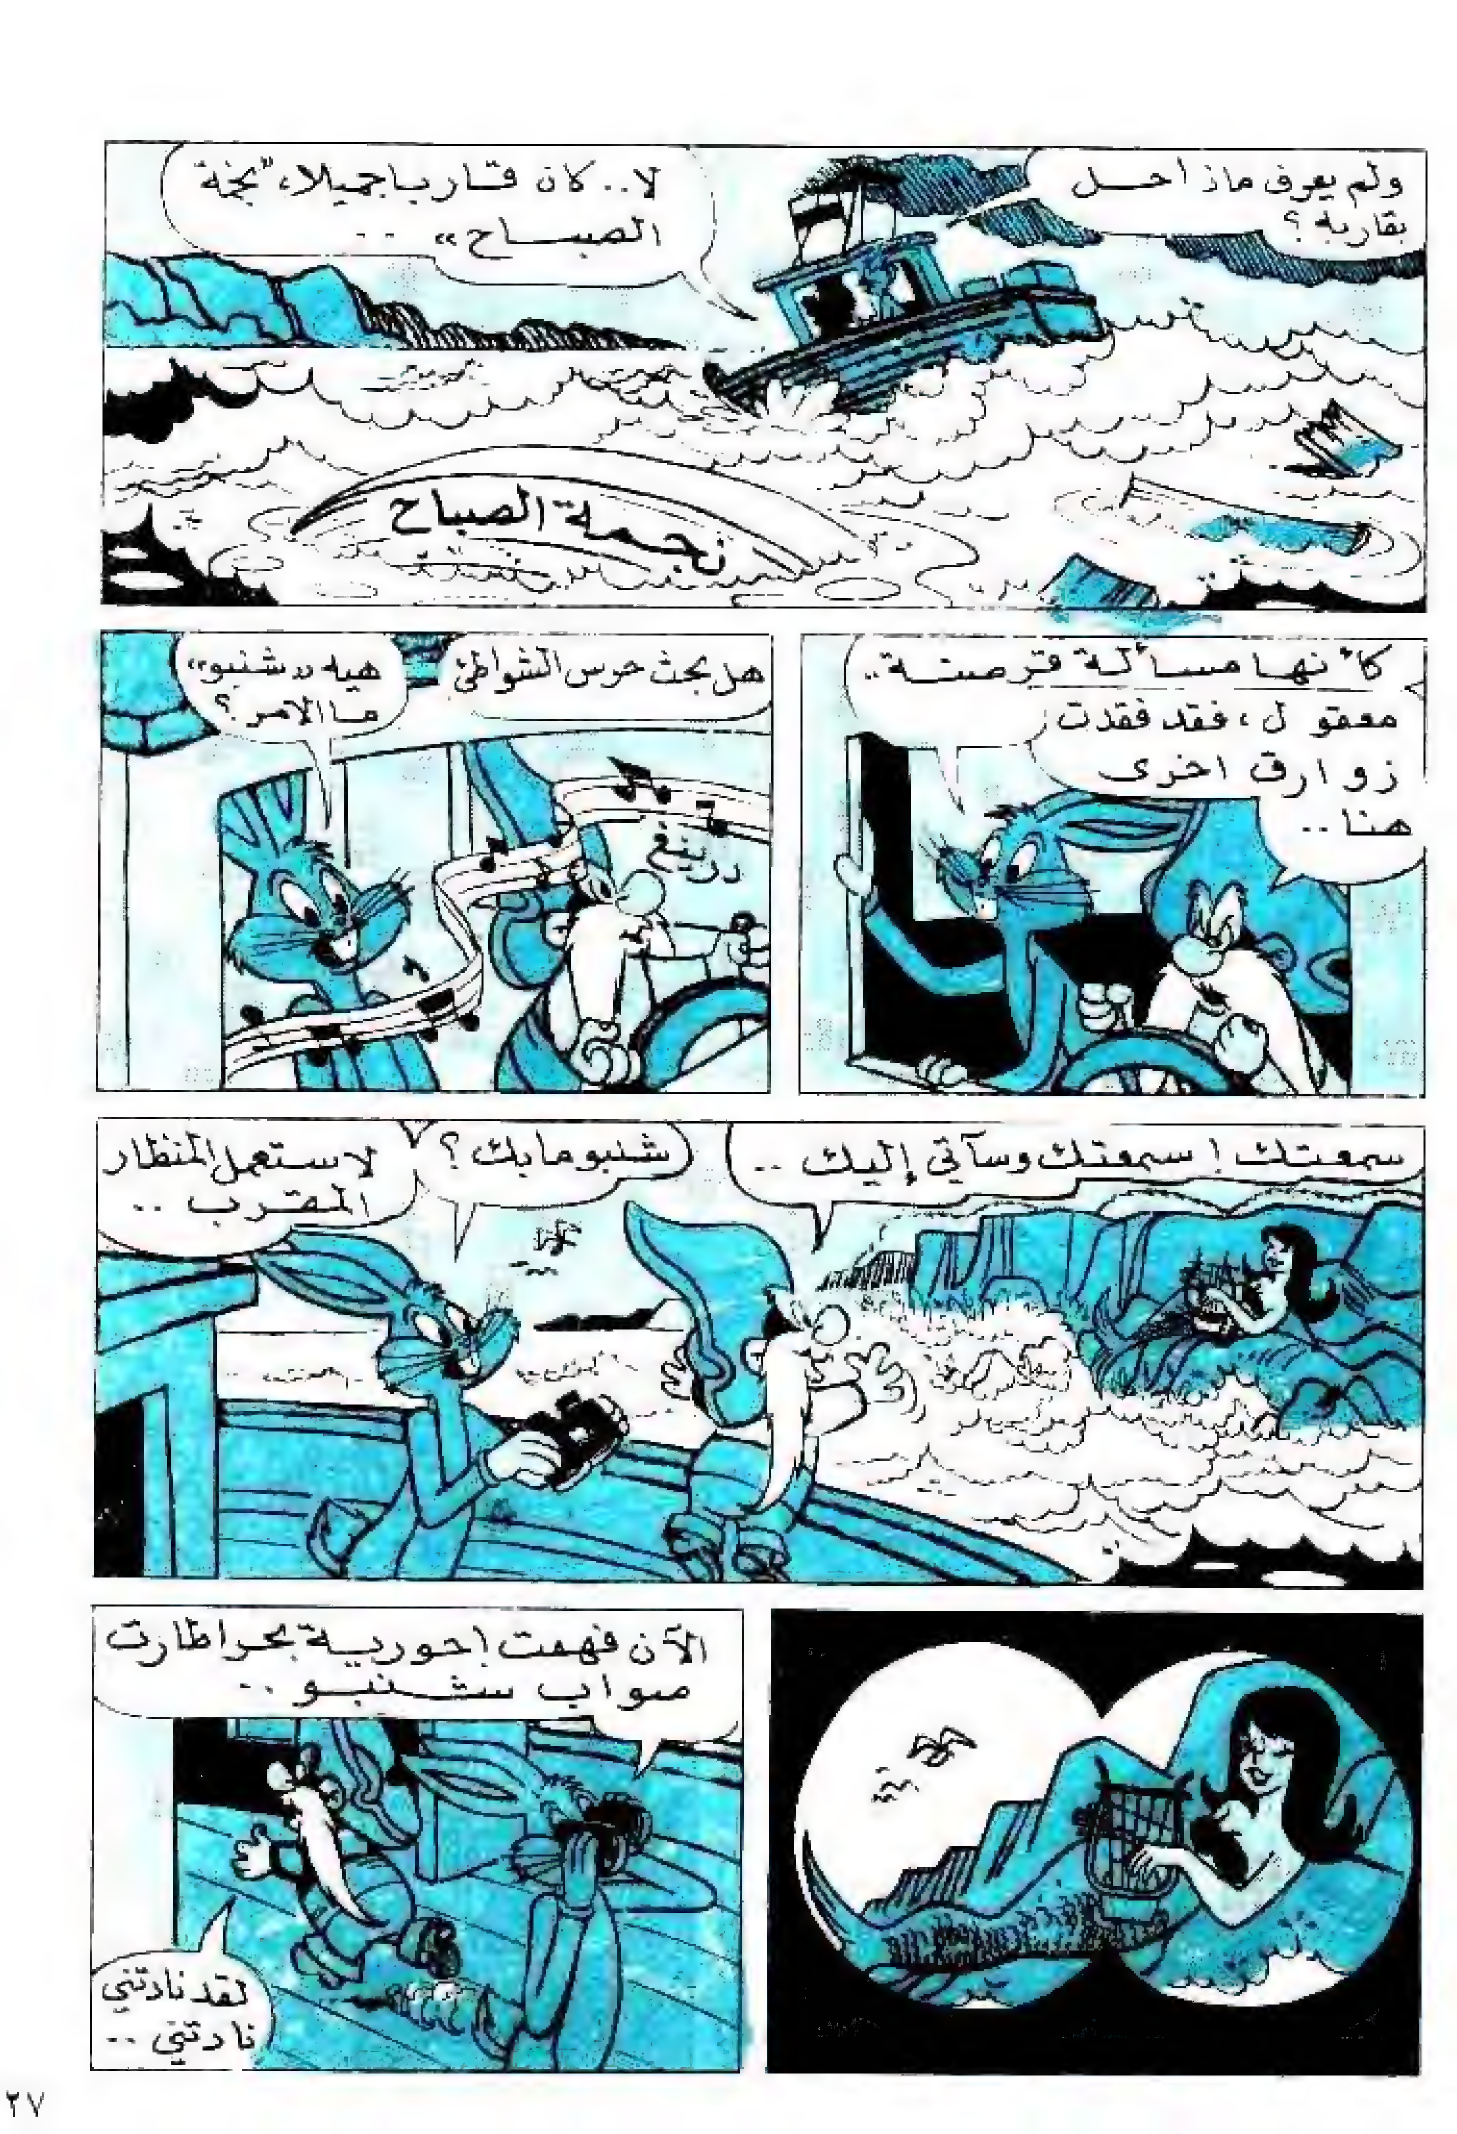 ولم يعرف ماذا حل
بقاربه؟
لا.. كان قاربا جميلا، "نجمة
الصباح» ..
نجمة الصباح
كأنها مسألة قرصنة..
معقول، فقد فقدت
زوارق اخرى
هنا..
هل بحث حرس الشواطئ
هيه «شنبو»
ما الامر؟
درينغ
سمعتك! سمعتك وسآتي إليك ..
شنبو مابك؟
لاستعمل المنظار
المقرب ..
الآن فهمت! حورية بحر! طارت
صواب شنبو ..
لقد نادتني
نادتني ..
٢٧